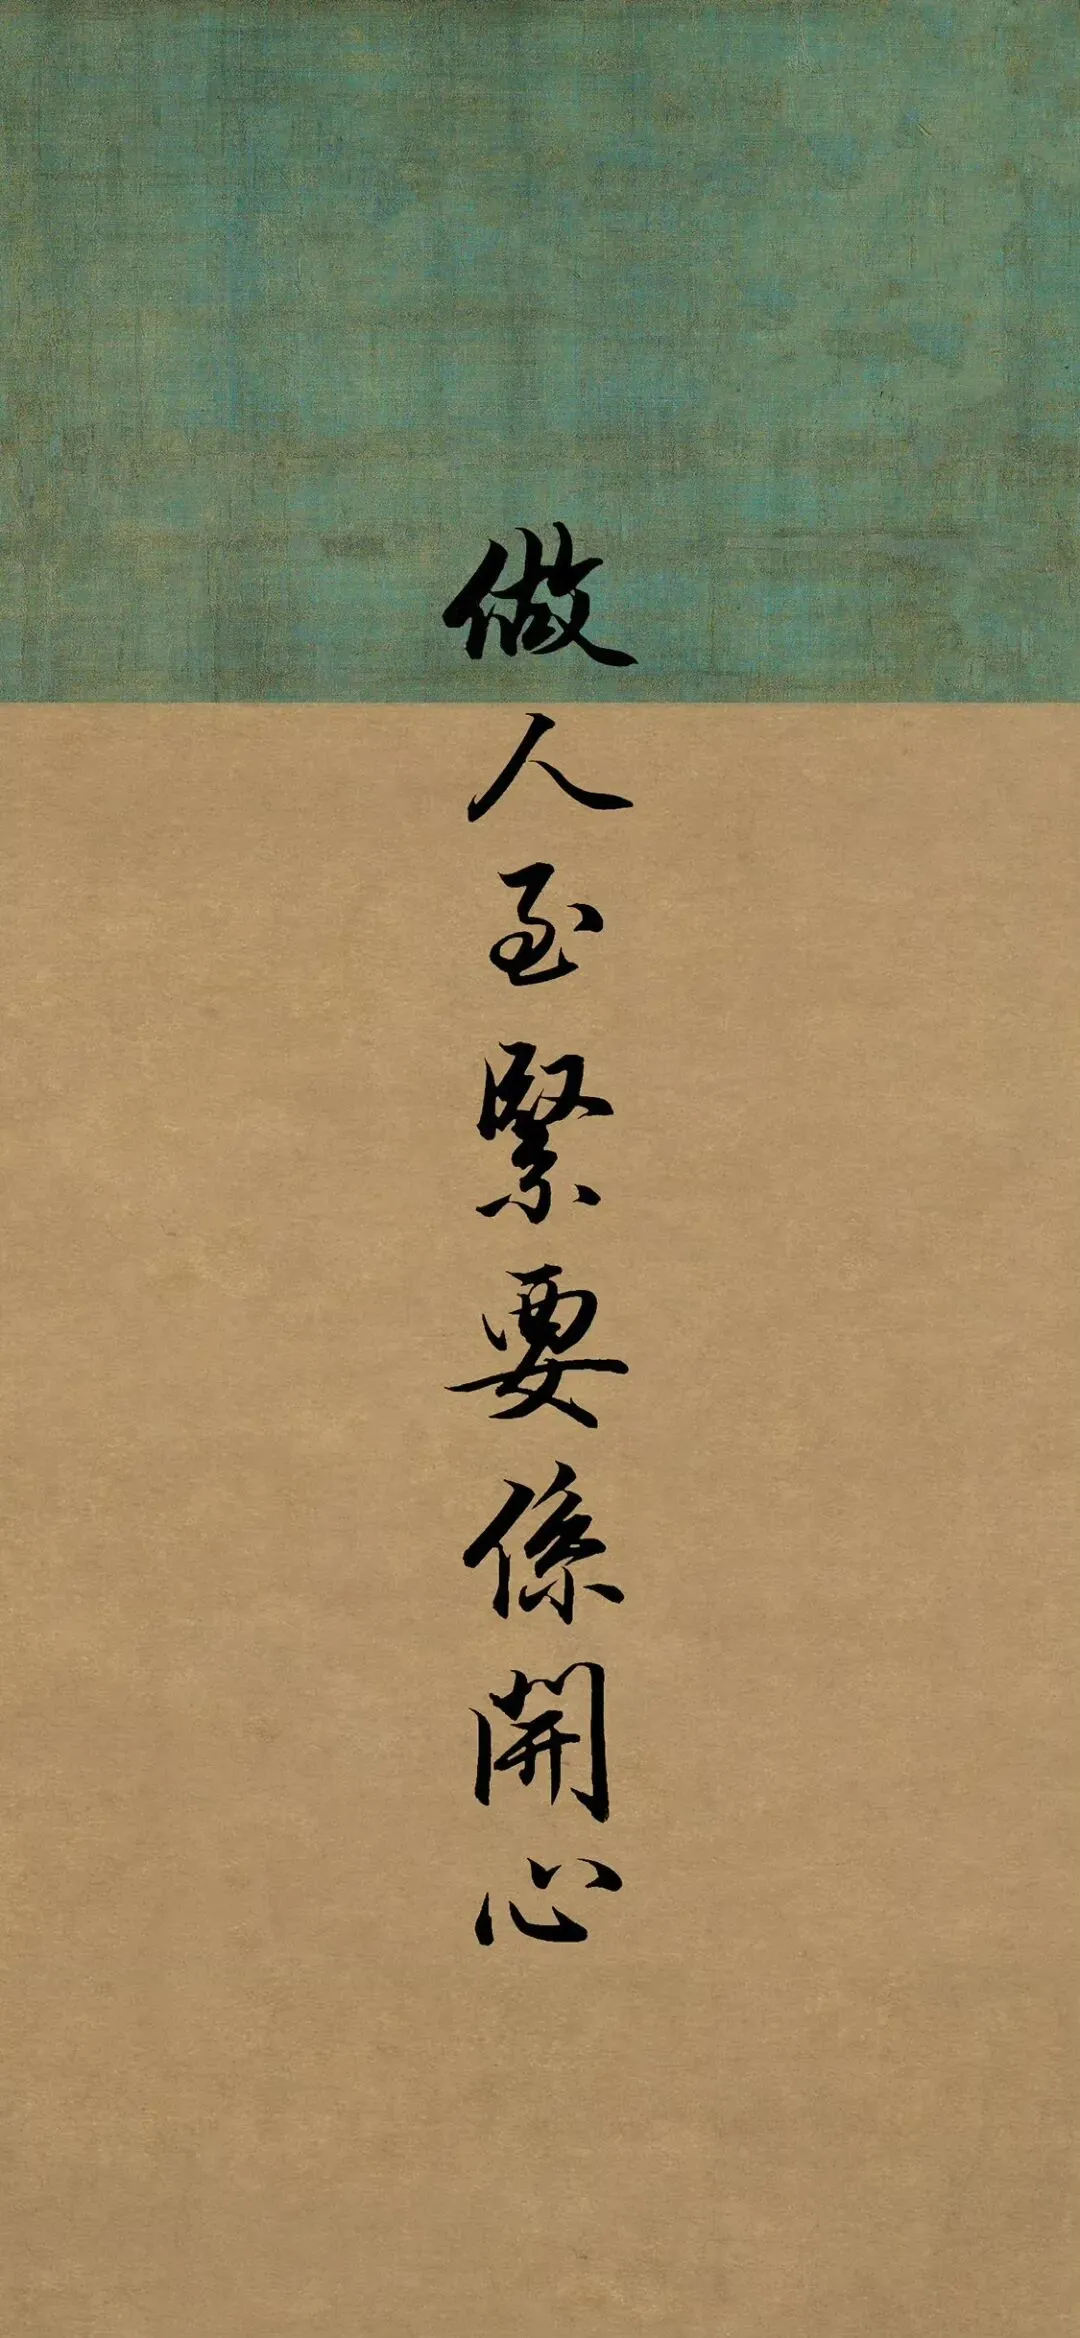 做人至緊要係開心